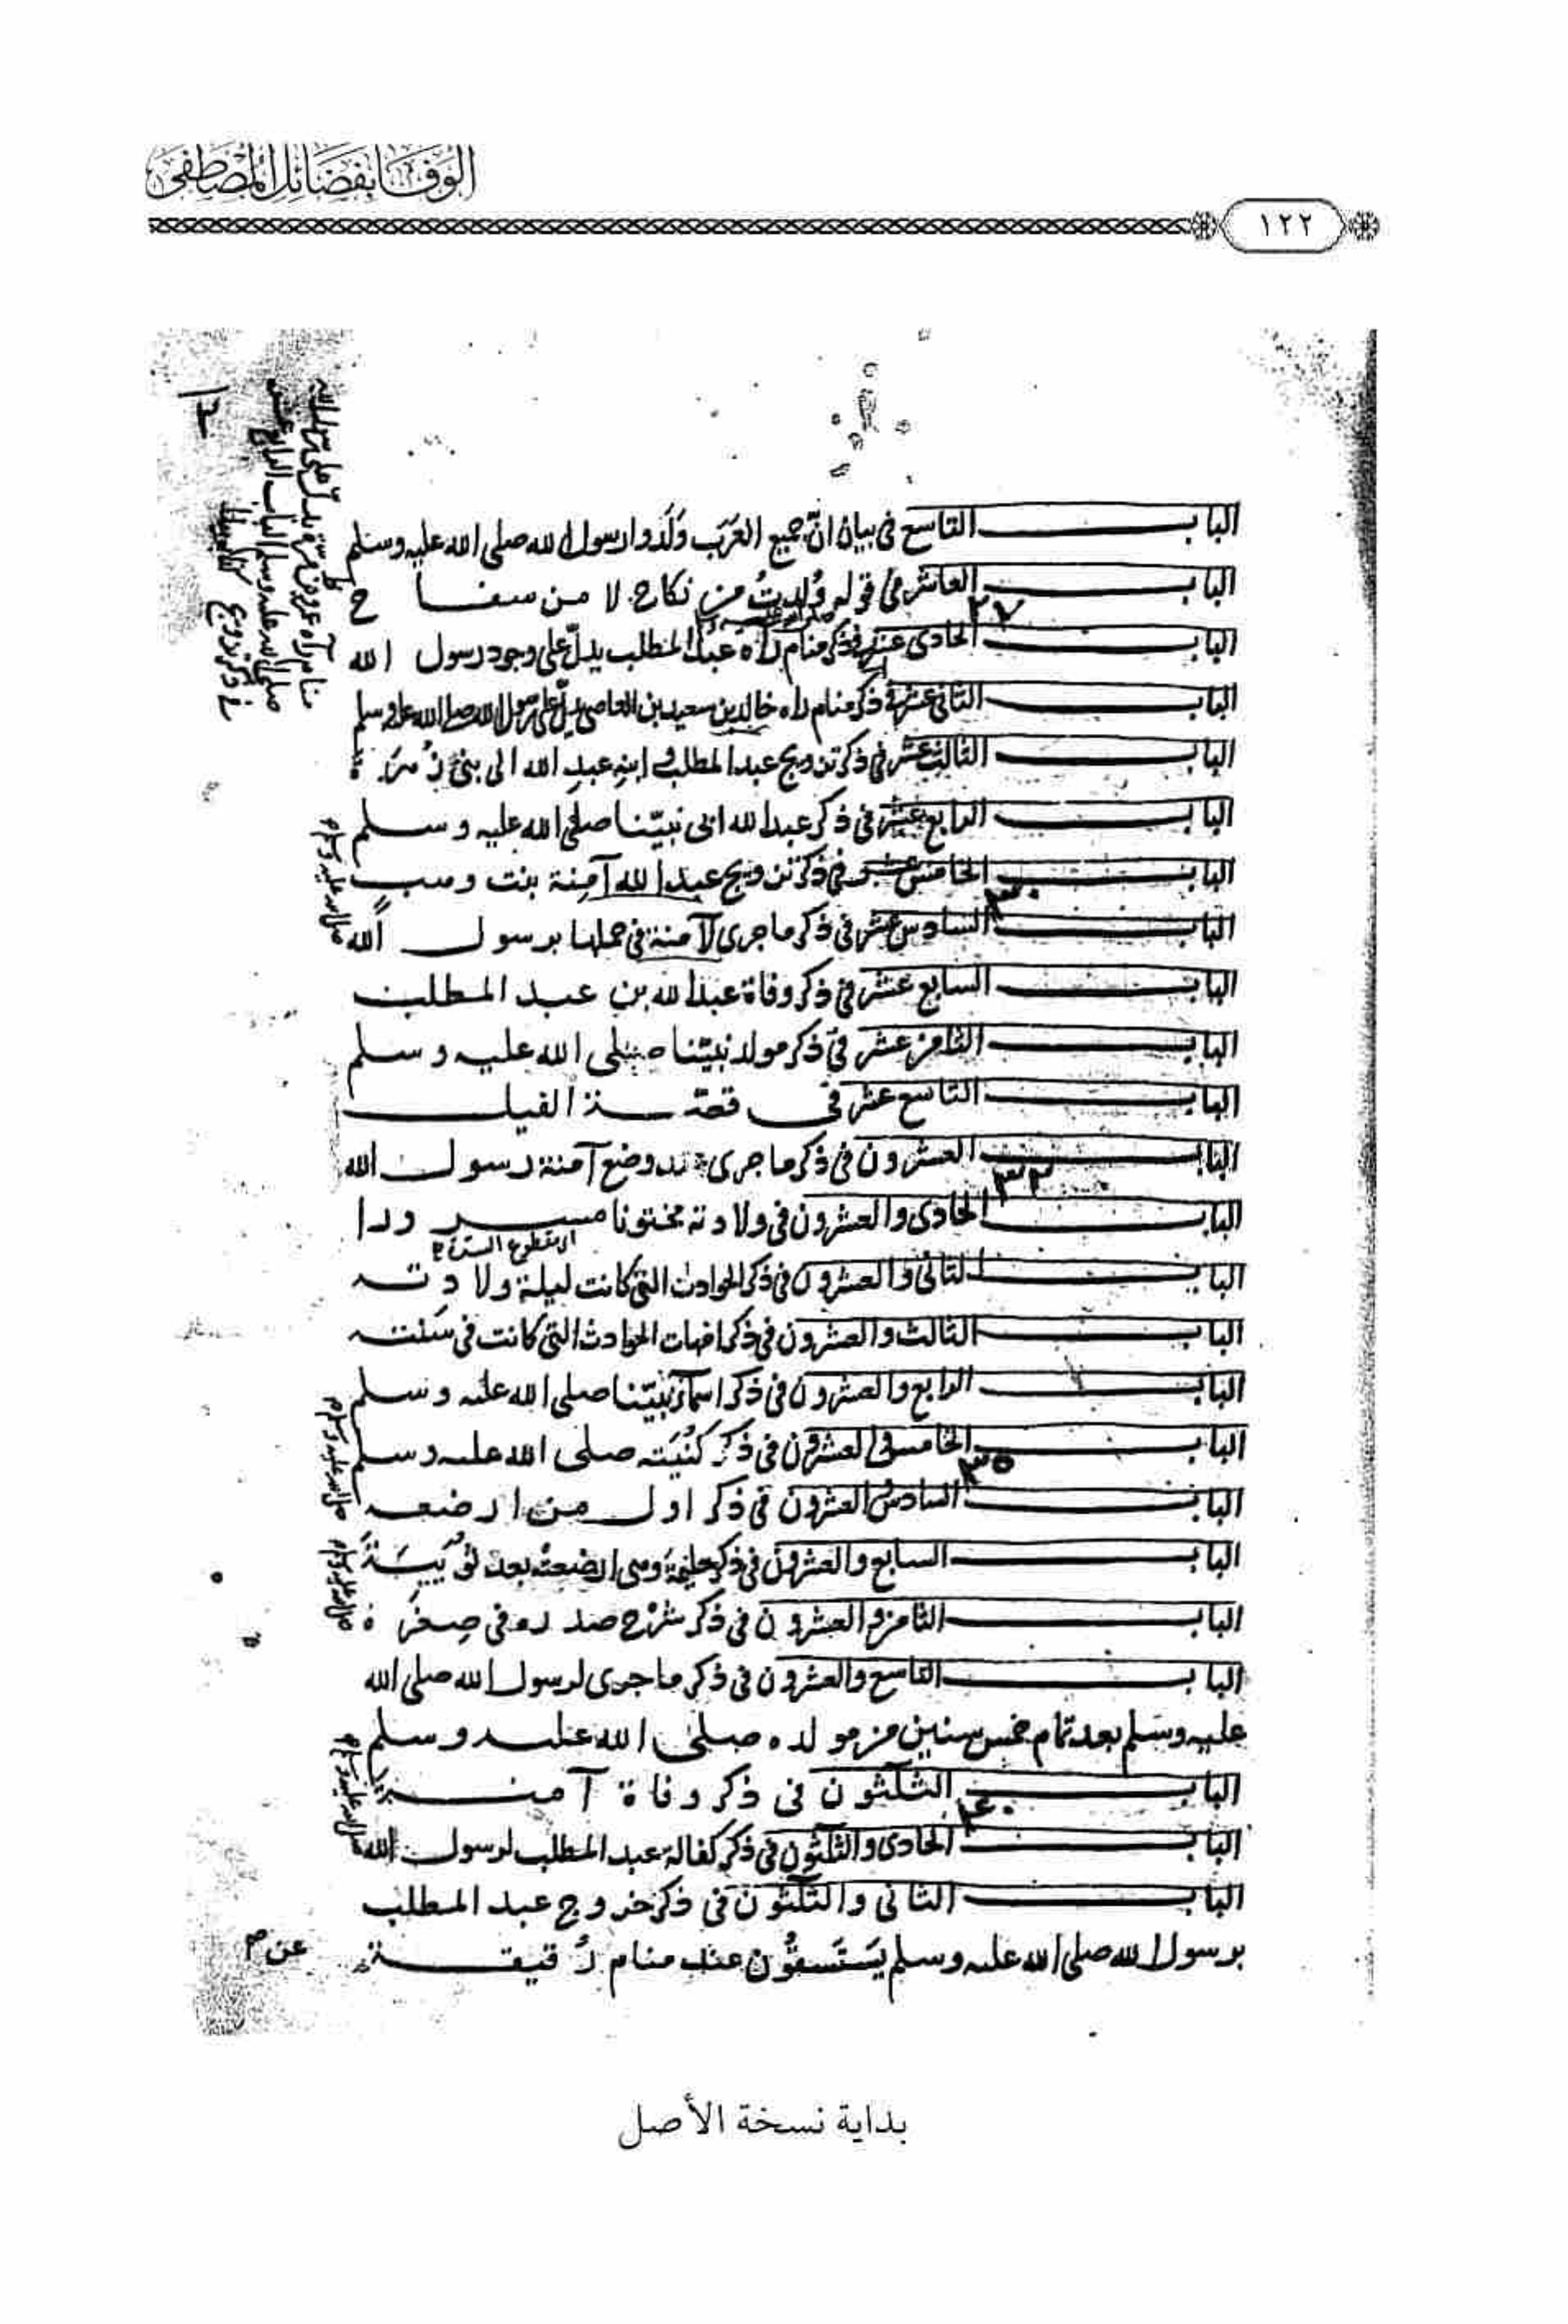 الوفا بفضائل المصطفى
١٢٢
الباب التاسع في بيان انّ جميع العَرَب وَلَدوا رسول الله صلى الله عليه وسلم
الباب العاشر في قوله وُلدتُ من نكاح لا من سفاح
٢٧
الباب الحادى عشر في ذكر منام راه عبد المطلب يدلّ على وجود رسول الله
الباب الثانى عشر في ذكر منام راه خالد بن سعيد بن العاصى يدلّ على رسول الله صلى الله عليه وسلم
الباب الثالث عشر في ذكر تزويج عبد المطلب ابنه عبد الله الى بنى زُهرَة
الباب الرابع عشر في ذكر عبد الله ابى نبيّنا صلى الله عليه وسلم
الباب الخامس عشر في ذكر تزويج عبد الله آمِنة بنت وهبٍ
٣٠
الباب السادس عشر في ذكر ما جرى لآمنة في حملها برسول الله
صلى الله عليه وسلم
الباب السابع عشر في ذكر وفاة عبد الله بن عبد المطلب
الباب الثامن عشر في ذكر مولد نبيّنا صلى الله عليه وسلم
الباب التاسع عشر في قصّة الفيل
الباب العشرون في ذكر ما جرى عند وضع آمنة رسول الله
٣٢
الباب الحادى والعشرون في ولادته مختونا مسرورا
اى مقطوع السرة
الباب الثانى والعشرون في ذكر الحوادث التى كانت ليلة ولادته
الباب الثالث والعشرون في ذكر امهات الحوادث التى كانت في سنته
الباب الرابع والعشرون في ذكر اسماء نبيّنا صلى الله عليه وسلم
الباب الخامس والعشرون في ذكر كُنْيَته صلى الله عليه وسلم
٣٥
الباب السادس والعشرون في ذكر اول من ارضعه
صلى الله عليه وسلم
الباب السابع والعشرون في ذكر حليمة وهى ارضعته بعد ثُوَيبَةَ
الباب الثامن والعشرون في ذكر شرْح صدره في صِغَره
صلى الله عليه وسلم
الباب التاسع والعشرون في ذكر ما جرى لرسول الله صلى الله
عليه وسلم بعد تمام خمس سنين من مولده صلى الله عليه وسلم
الباب الثلثون في ذكر وفاة آمنة
٤٠
الباب الحادى والثلثون في ذكر كفالة عبد المطلب لرسول الله
صلى الله عليه وسلم
الباب الثانى والثلثون في ذكر خروج عبد المطلب
برسول الله صلى الله عليه وسلم يَستَسقُون عند منام رُقيقة
بداية نسخة الأصل